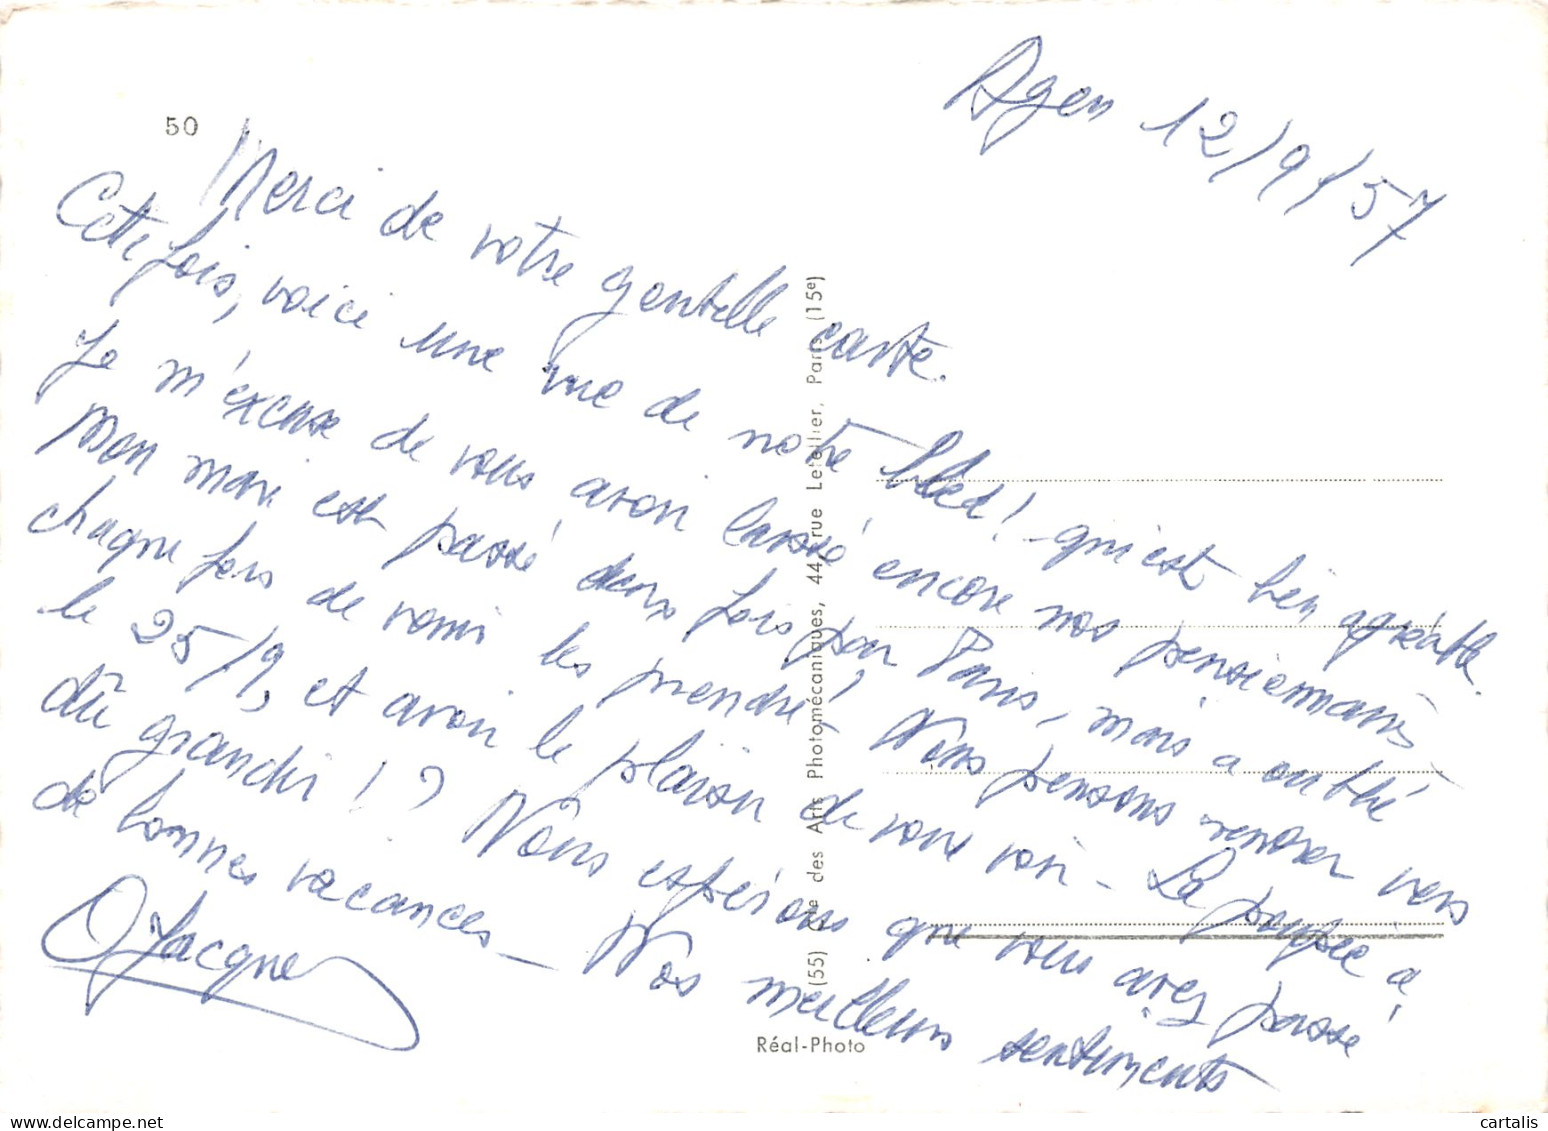 50
Agen 12/9/57
Merci de votre gentille carte.
Cette fois, voici une vue de notre bled! qui est bien agréable.
Je m'excuse de vous avoir laissé encore nos pensionnaires
Mon mari est passé deux fois par Paris, mais a oublié
chaque fois de venir les prendre! Nous pensons revenir vers
le 25/9, et avoir le plaisir de vous voir - La poupée a
dû grandir!? Nous espérons que vous avez passé
de bonnes vacances - Nos meilleurs sentiments
Jacque
(55) Cie des Arts Photomécaniques, 44, rue Letellier, Paris (15e)
Réal-Photo
www.cartalis.com